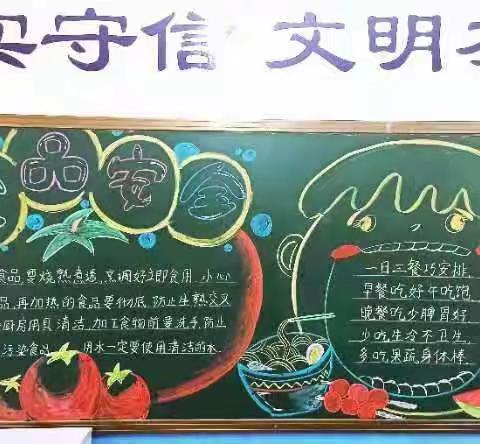 实守信 文明
品安全
食品,要烧熟煮透,烹调好立即食用 小心
品,再加热的食品要彻底,防止生熟交叉
厨房用具清洁,加工食物前要洗手,防止
污染食品 用水一定要使用清洁的水
一日三餐巧安排
早餐吃好午吃饱
晚餐吃少脾胃好
少吃生冷不卫生
多吃果蔬身体棒